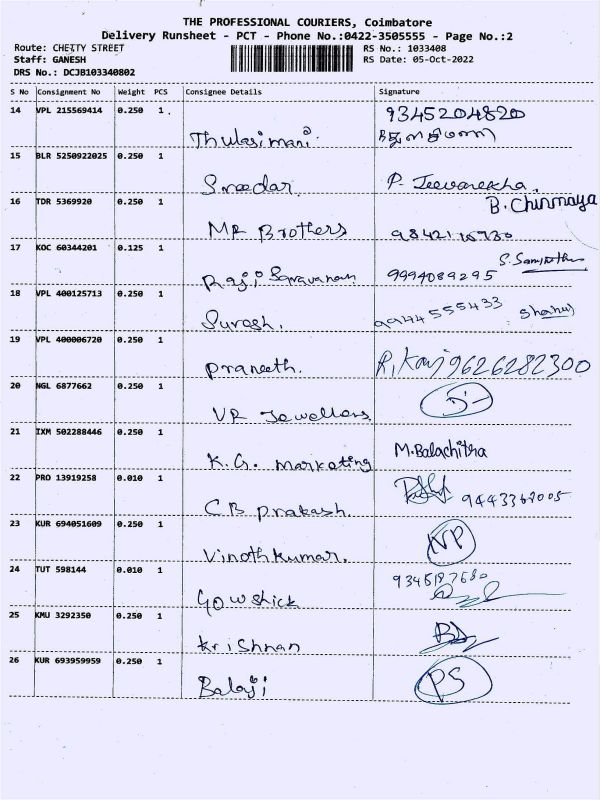 THE PROFESSIONAL COURIERS, Coimbatore
Delivery Runsheet - PCT - Phone No.:0422-3505555 - Page No.:2
Route: CHETTY STREET
RS No.: 1033408
Staff: GANESH
RS Date: 05-Oct-2022
DRS No.: DCJB103340802
S No Consignment No Weight PCS Consignee Details Signature
14 VPL 215569414 0.250 1 9345204820
Thulasimani துளசிமணி
15 BLR 5250922025 0.250 1
Sreedar P. Jeevarekha.
16 TDR 5369920 0.250 1 B. Chinmaya
MR Brothers
17 KOC 60344201 0.125 1
Raji Saravanan 9994089295
18 VPL 400125713 0.250 1 9944555433
Suresh.
19 VPL 400006720 0.250 1
Praneeth. 9626282300
20 NGL 6877662 0.250 1
VR Jewellers
21 IXM 502288446 0.250 1 M.Balachitra
K.G. marketing
22 PRO 13919258 0.010 1
CB prakash.
23 KUR 694051609 0.250 1 NP
Vinothkumar.
24 TUT 598144 0.010 1
Gowshick
25 KMU 3292350 0.250 1
Krishnan
26 KUR 693959959 0.250 1 PS
Balaji